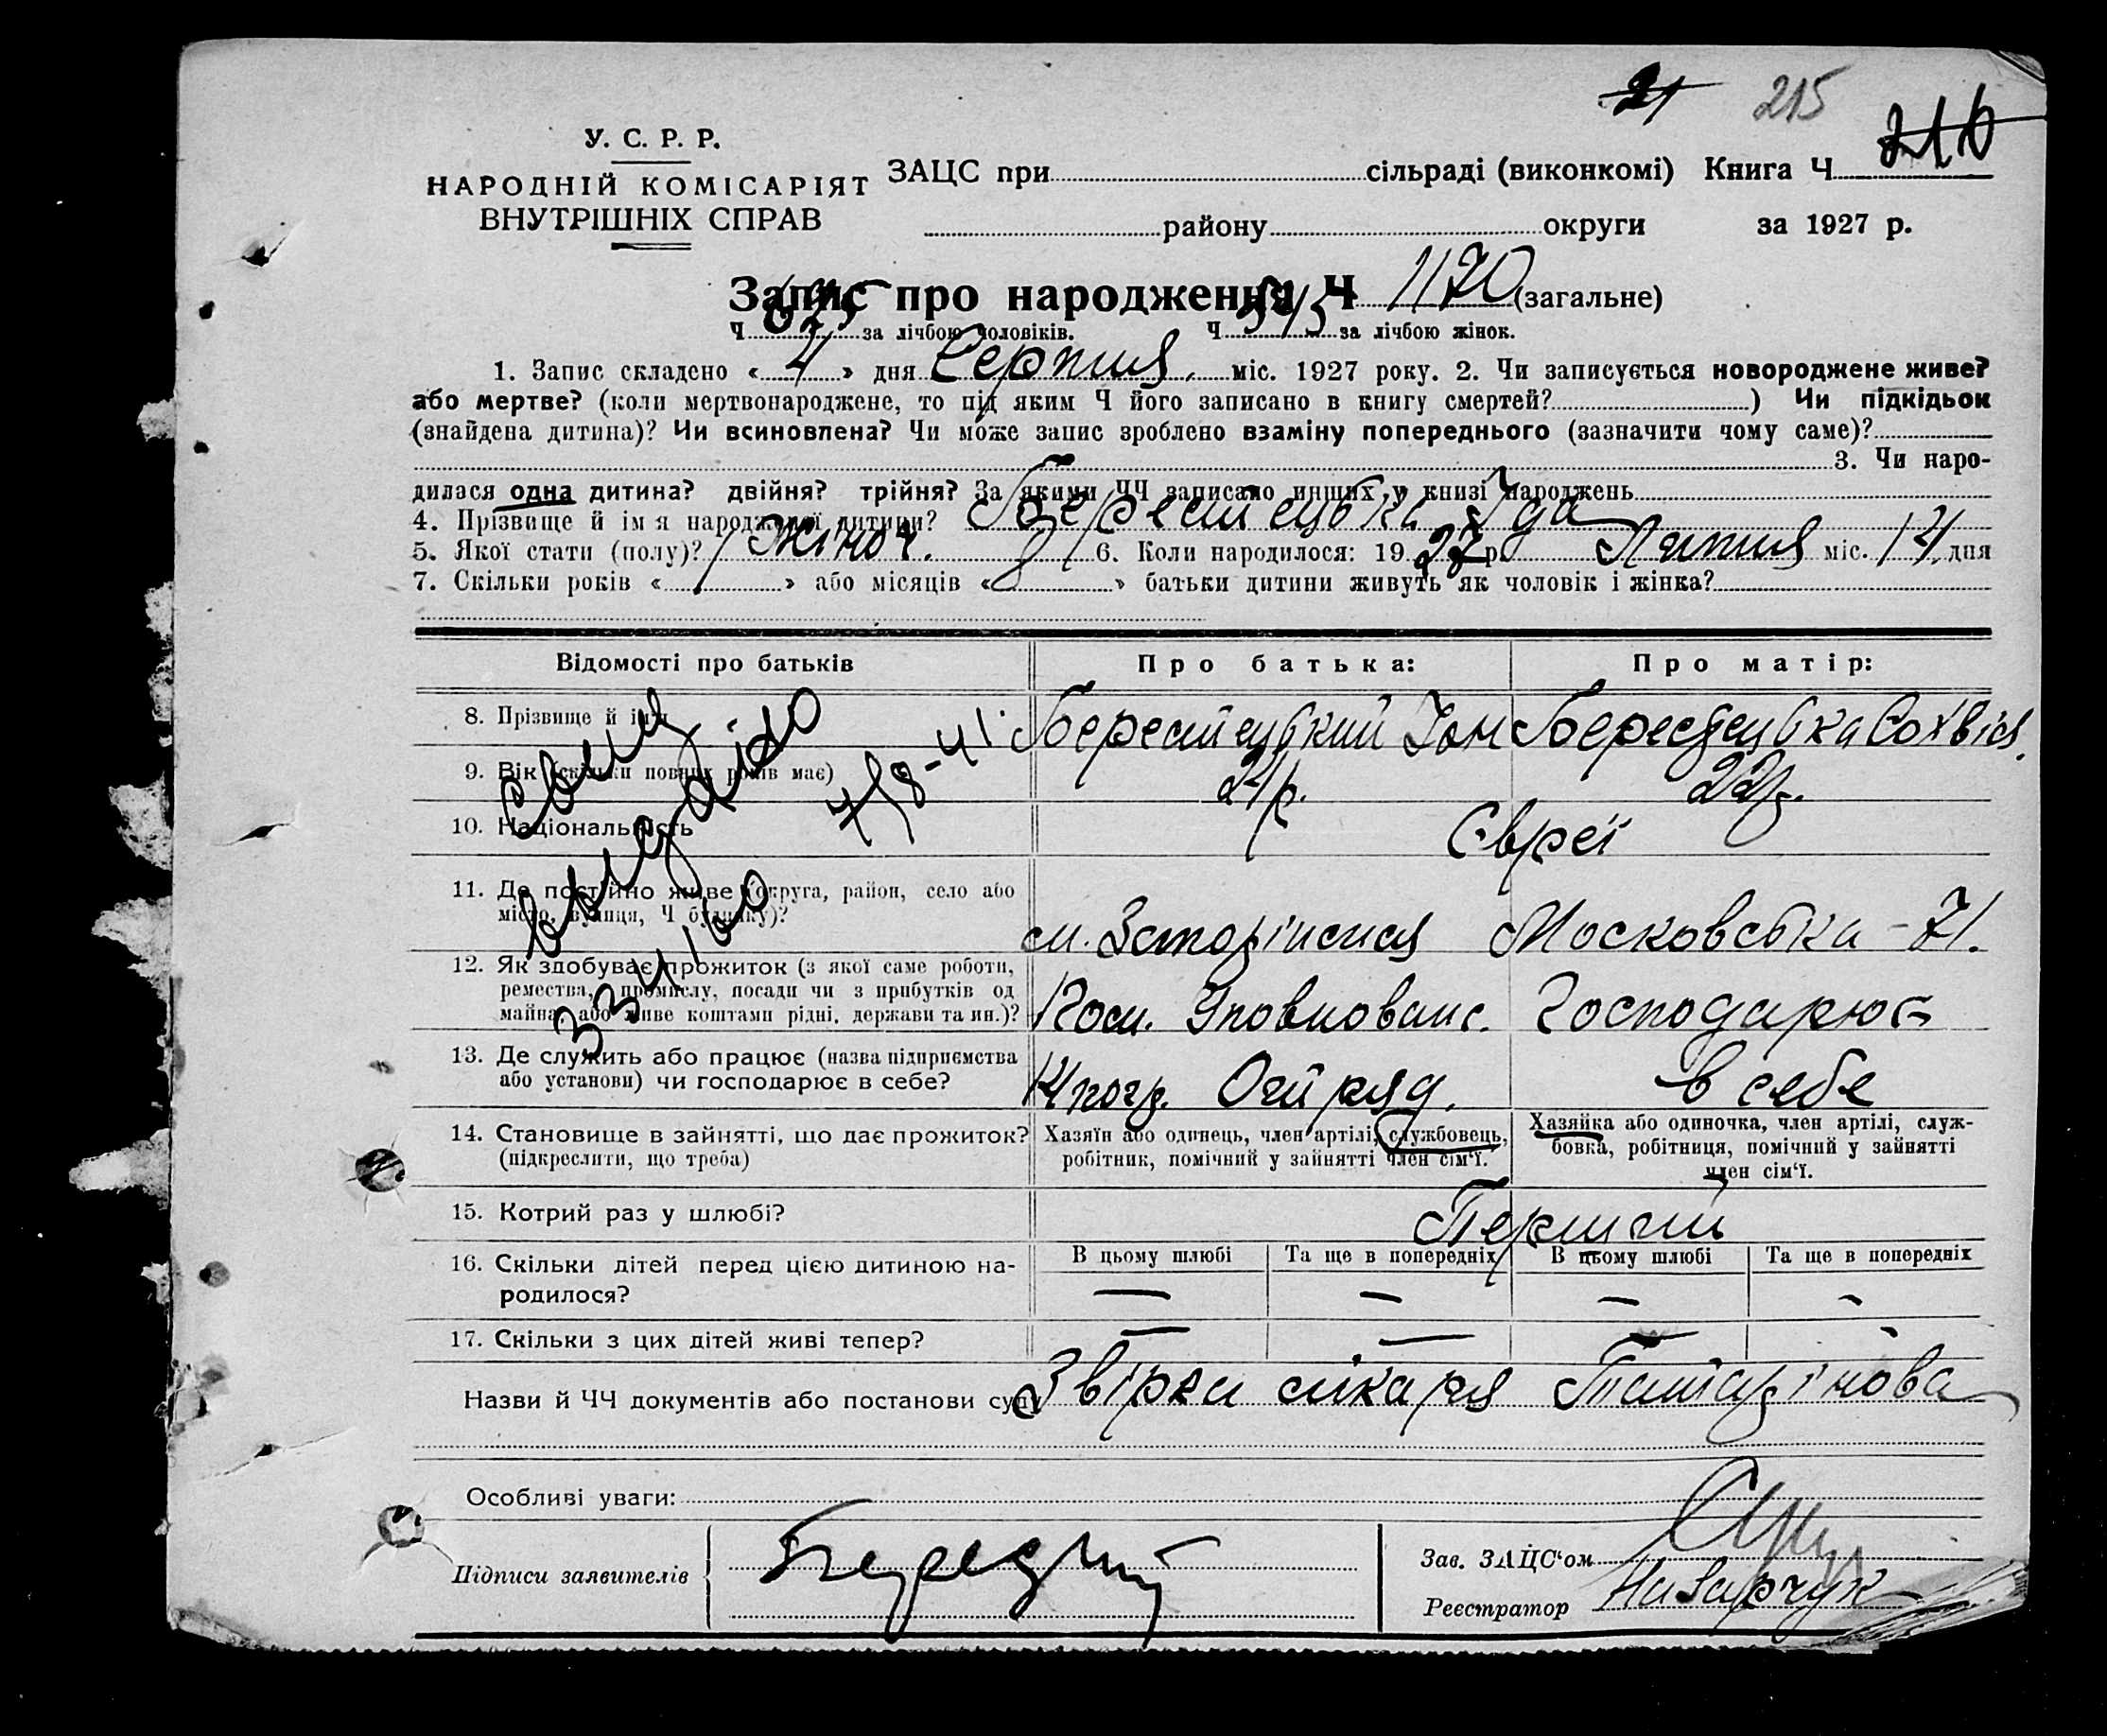 21 215
У. С. Р. Р.
НАРОДНІЙ КОМІСАРІЯТ
ВНУТРІШНІХ СПРАВ
ЗАЦС при сільраді (виконкомі) Книга Ч 216
району округи за 1927 р.
Запис про народження Ч 1170 (загальне)
Ч 625 за лічбою чоловіків. Ч 545 за лічбою жінок.
1. Запис складено « 4 » дня Серпня міс. 1927 року. 2. Чи записується новороджене живе?
або мертве? (коли мертвонароджене, то під яким Ч його записано в книгу смертей? ) Чи підкідьок
(знайдена дитина)? Чи всиновлена? Чи може запис зроблено взаміну попереднього (зазначити чому саме)?
3. Чи наро-
дилася одна дитина? двійня? трійня? За якими ЧЧ записано инших у книзі народжень
4. Прізвище й ім'я народженої дитини? Берестецька Іда
5. Якої стати (полу)? Жіноч. 6. Коли народилося: 1927 р. Липня міс. 14 дня
7. Скільки років « 1 » або місяців « » батьки дитини живуть як чоловік і жінка?
Відомості про батьків Про батька: Про матір:
8. Прізвище й ім'я Берестецький Берестецька
9. Вік (скільки повних років має) 24 р. 22 р.
10. Національність Євреї
11. Де постійно живе (округа, район, село або
місто, вулиця, Ч будинку)?
м. Московська - 71.
12. Як здобуває прожиток (з якої саме роботи,
ремества, промислу, посади чи з прибутків од
майна, або живе коштами рідні, держави та ин.)?
Уповнован. Господарює
13. Де служить або працює (назва підприємства
або установи) чи господарює в себе?
в себе
14. Становище в зайнятті, що дає прожиток?
(підкреслити, що треба)
Хазяїн або одинець, член артілі, службовець,
робітник, помічний у зайнятті член сім'ї.
Хазяйка або одиночка, член артілі, служ-
бовка, робітниця, помічний у зайнятті
член сім'ї.
15. Котрий раз у шлюбі? Перший
16. Скільки дітей перед цією дитиною на-
родилося?
В цьому шлюбі Та ще в попередніх В цьому шлюбі Та ще в попередніх
— — — —
17. Скільки з цих дітей живі тепер? — — — —
Назви й ЧЧ документів або постанови суду лікаря
Особливі уваги:
Підписи заявителів
Зав. ЗАЦС'ом
Реєстратор Назарчук
4/8-41.